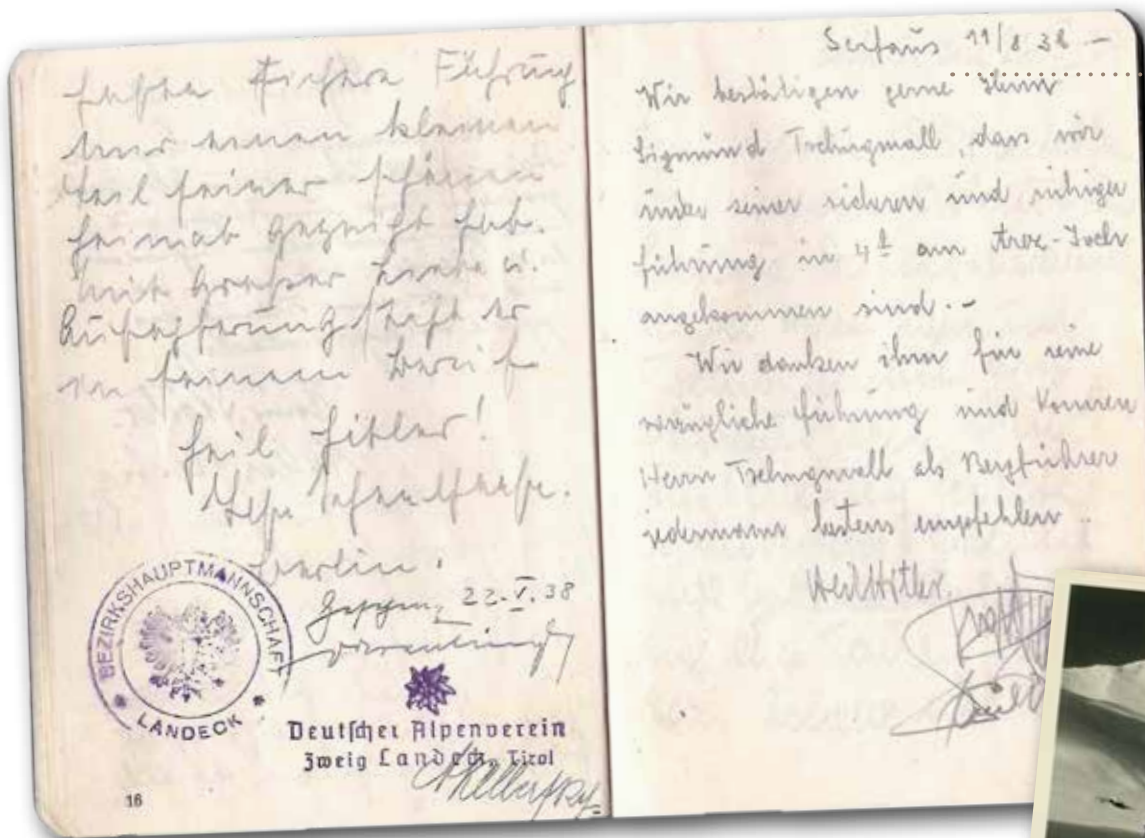 sichere Führung
nur einen kleinen
Teil seiner schönen
Heimat gezeigt hat.
Mit großer Liebe u.
Aufopferung
in seinem Beruf
Heil Hitler!
Berlin.
Gesehen, 22. V. 38
BEZIRKSHAUPTMANNSCHAFT
LANDECK
Deutscher Alpenverein
Zweig Landeck, Tirol
16
Serfaus 11/8 38 –
Wir bestätigen gerne Herrn
Sigmund Tschingmall, dass wir
unter seiner sicheren und ruhigen
Führung in 4h am Arez-Joch
angekommen sind. –
Wir danken ihm für seine
vorzügliche Führung und können
Herrn Tschingmall als Bergführer
jedermann bestens empfehlen.
Heil Hitler.